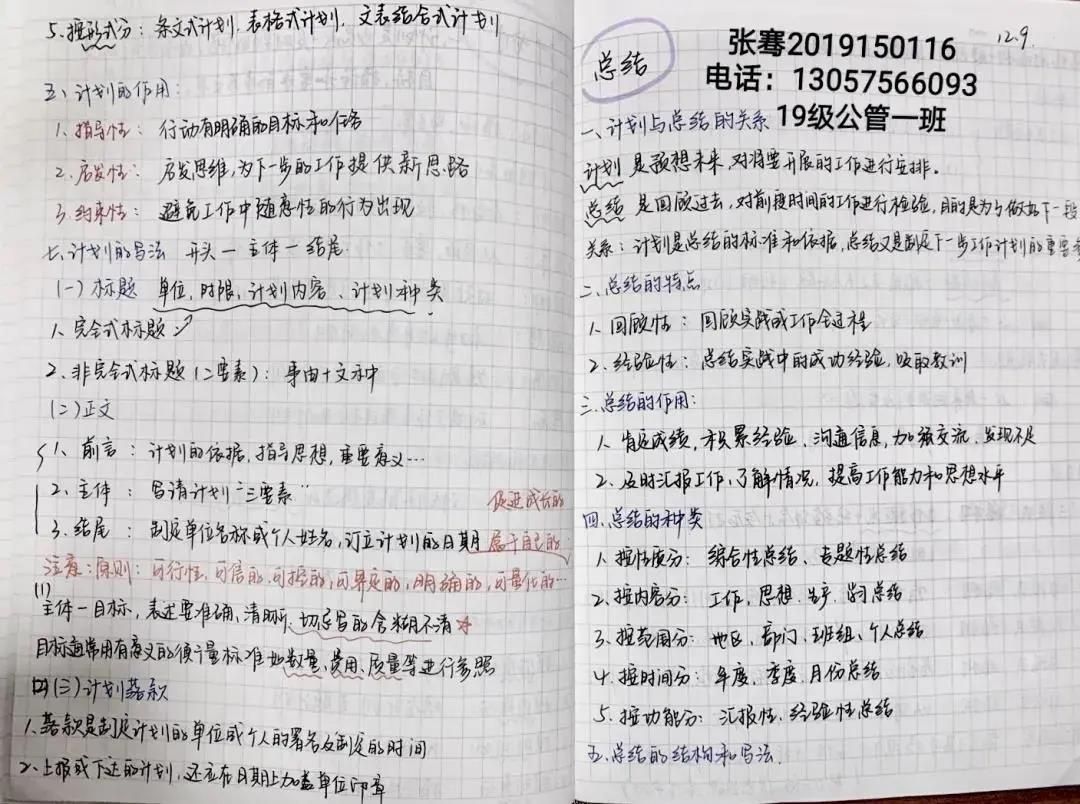 5.按形式分：条文式计划，表格式计划，文表结合式计划
五、计划的作用：
1.指导性：行动有明确的目标和任务
2.启发性：启发思维，为下一步的工作提供新思路
3.约束性：避免工作中随意性的行为出现
七、计划的写法 开头—主体—结尾
(一)标题 单位，时限，计划内容、计划种类
1.完全式标题
2.非完全式标题(二要素)：事由+文种
(二)正文
1.前言：计划的依据，指导思想，重要意义…
2.主体：写清计划"三要素"
促进成长的
3.结尾：制定单位名称或个人姓名，订立计划的日期 属于自己的
注意：原则：可行性，可信的，可操的，可界定的，明确的，可量化的…
(1)
主体—目标，表述要准确，清晰，切忌写的含糊不清
目标通常用有意义的衡量标准如数量，费用，质量等进行参照
(三)计划落款
1.落款是制定计划的单位或个人的署名及制定的时间
2.上报或下达的计划，还应在日期上加盖单位印章
12.9.
总结
张骞2019150116
电话：13057566093
19级公管一班
一、计划与总结的关系
计划是预想未来，对将要开展的工作进行安排。
总结是回顾过去，对前段时间的工作进行检验，目的是为了做好下一段
关系：计划是总结的标准和依据，总结又是制定下一步工作计划的重要
二、总结的特点
1.回顾性：回顾实践或工作全过程
2.经验性：总结实践中的成功经验，吸取教训
三、总结的作用：
1.肯定成绩，积累经验、沟通信息，加强交流，发现不足
2.及时汇报工作，了解情况，提高工作能力和思想水平
四、总结的种类
1.按性质分：综合性总结、专题性总结
2.按内容分：工作，思想，生产，学习总结
3.按范围分：地区，部门，班组，个人总结
4.按时间分：年度，季度，月份总结
5.按功能分：汇报性，经验性总结
五、总结的结构和写法